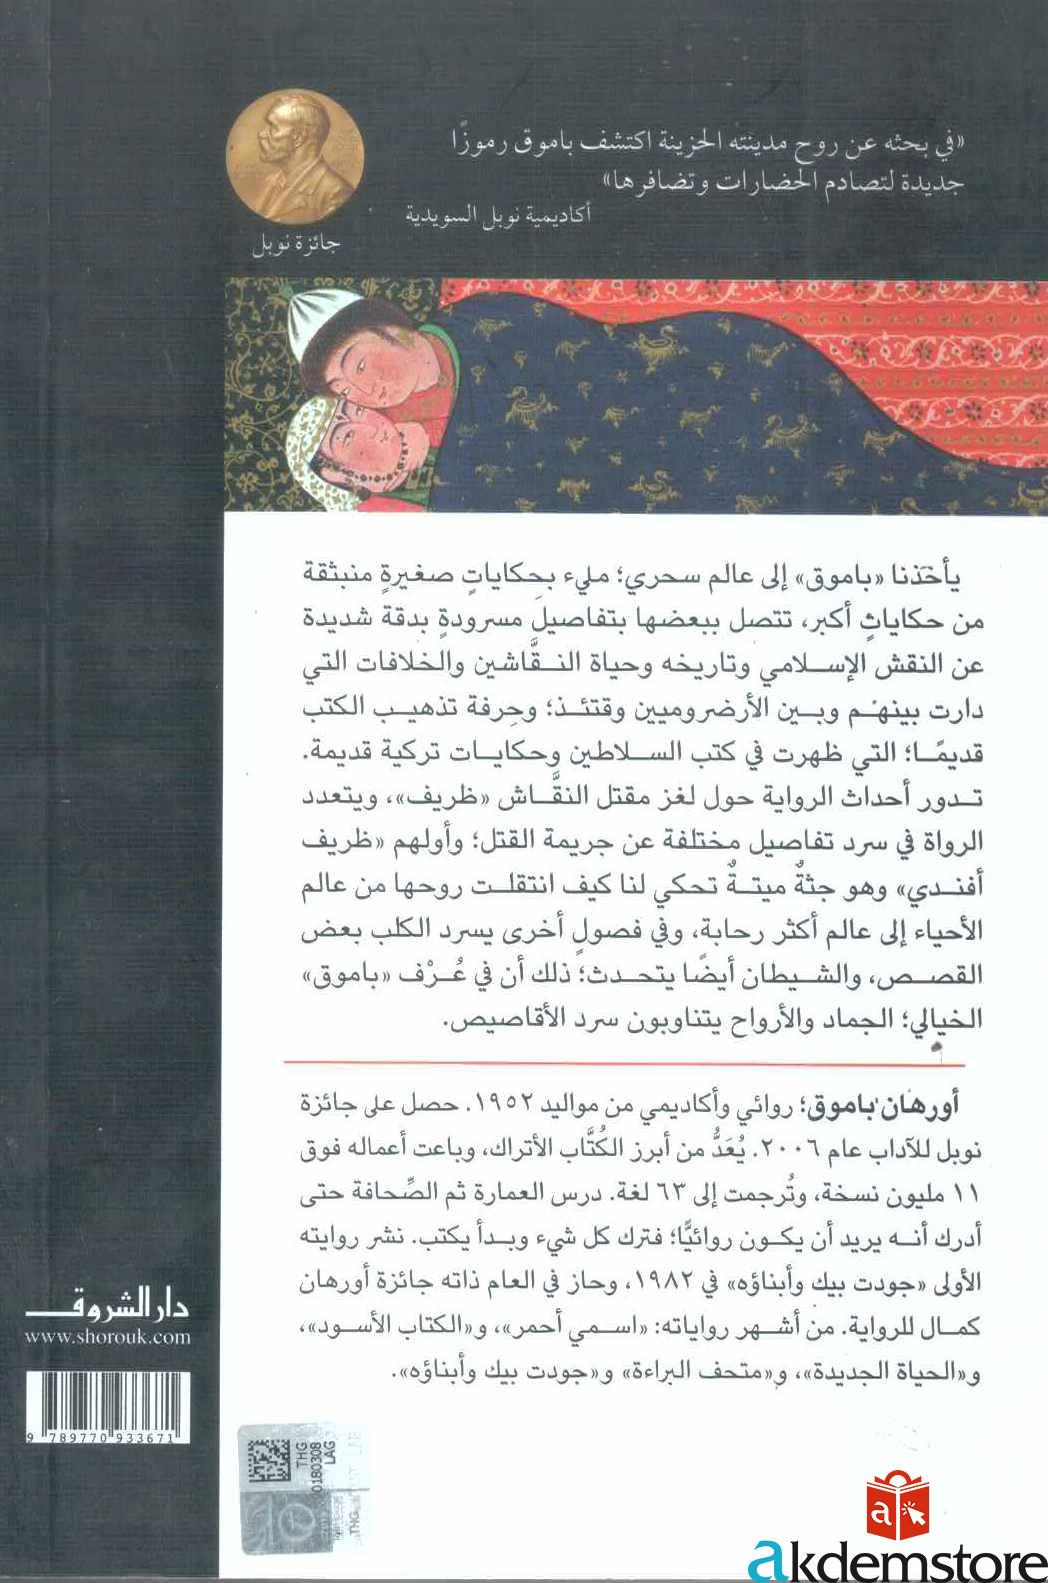 «في بحثه عن روح مدينته الحزينة اكتشف باموق رموزًا
جديدة لتصادم الحضارات وتضافرها»
أكاديمية نوبل السويدية
جائزة نوبل
يأخذنا «باموق» إلى عالم سحري؛ مليء بحِكاياتٍ صغيرةٍ منبثقة
من حكاياتٍ أكبر، تتصل ببعضها بتفاصيل مسرودةٍ بدقة شديدة
عن النقش الإسلامي وتاريخه وحياة النقَّاشين والخلافات التي
دارت بينهم وبين الأرضروميين وقتئذ؛ وحِرفة تذهيب الكتب
قديمًا؛ التي ظهرت في كتب السلاطين وحكايات تركية قديمة.
تدور أحداث الرواية حول لغز مقتل النقَّاش «ظريف»، ويتعدد
الرواة في سرد تفاصيل مختلفة عن جريمة القتل؛ وأولهم «ظريف
أفندي» وهو جثةٌ ميتةٌ تحكي لنا كيف انتقلت روحها من عالم
الأحياء إلى عالم أكثر رحابة، وفي فصولٍ أخرى يسرد الكلب بعض
القصص، والشيطان أيضًا يتحدث؛ ذلك أن في عُرْف «باموق»
الخيالي؛ الجماد والأرواح يتناوبون سرد الأقاصيص.
أورهان باموق؛ روائي وأكاديمي من مواليد ١٩٥٢. حصل على جائزة
نوبل للآداب عام ٢٠٠٦. يُعَدُّ من أبرز الكُتَّاب الأتراك، وباعت أعماله فوق
١١ مليون نسخة، وتُرجمت إلى ٦٣ لغة. درس العمارة ثم الصِّحافة حتى
أدرك أنه يريد أن يكون روائيًّا؛ فترك كل شيء وبدأ يكتب. نشر روايته
الأولى «جودت بيك وأبناؤه» في ١٩٨٢، وحاز في العام ذاته جائزة أورهان
كمال للرواية. من أشهر رواياته: «اسمي أحمر»، و«الكتاب الأسود»،
و«الحياة الجديدة»، و«متحف البراءة» و«جودت بيك وأبناؤه».
دار الشروق
www.shorouk.com
9 789770 933671
THG
0180308
LAG
THG
a
akdemstore